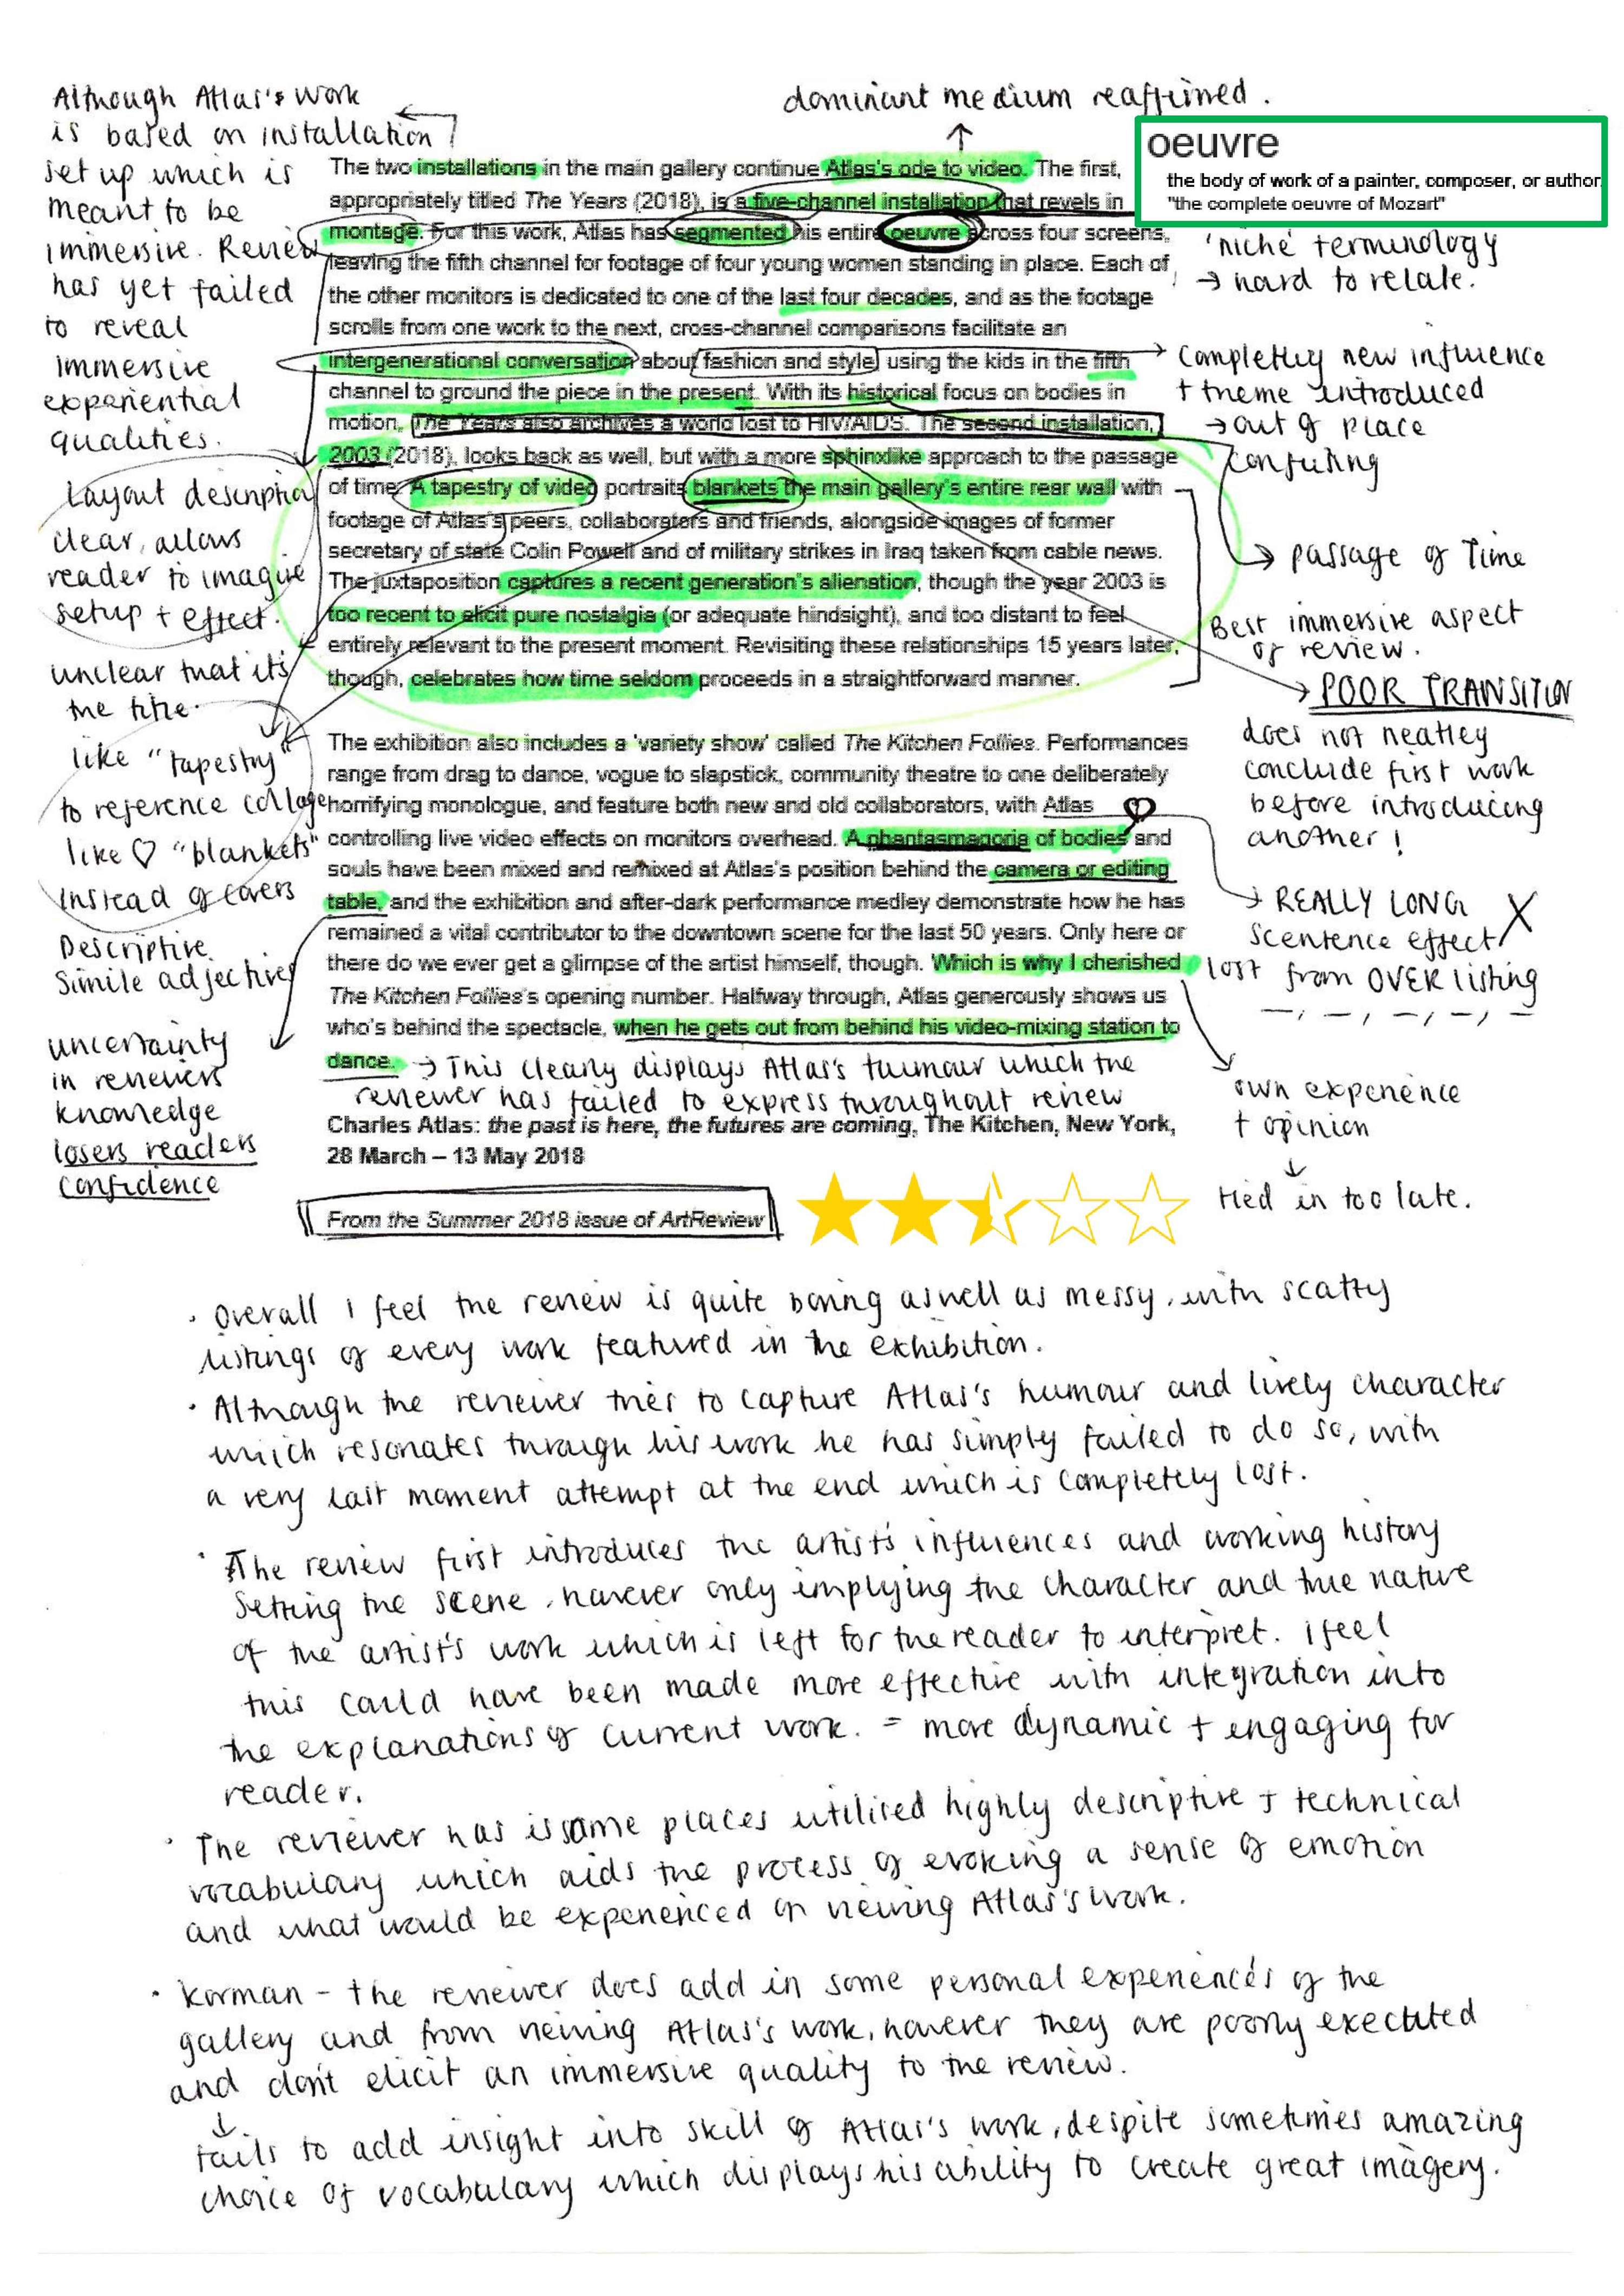 Although Atlas's work
is based on installation
set up which is
meant to be
immersive. Review
has yet failed
to reveal
immersive
experiential
qualities.
Layout description
clear, allows
reader to imagine
setup + effect.
unclear that it's
the title.
like "tapestry"
to reference collage
like ♡ "blankets"
instead of covers
Descriptive
Simile adjectives
uncertainty
in reviewers
knowledge
losers readers
confidence
dominant medium reaffirmed.
oeuvre
the body of work of a painter, composer, or author.
"the complete oeuvre of Mozart"
The two installations in the main gallery continue Atlas's ode to video. The first,
appropriately titled The Years (2018), is a five-channel installation that revels in
montage. For this work, Atlas has segmented his entire oeuvre across four screens,
leaving the fifth channel for footage of four young women standing in place. Each of
the other monitors is dedicated to one of the last four decades, and as the footage
scrolls from one work to the next, cross-channel comparisons facilitate an
intergenerational conversation about fashion and style, using the kids in the fifth
channel to ground the piece in the present. With its historical focus on bodies in
motion, The Years also archives a world lost to HIV/AIDS. The second installation,
2003 (2018), looks back as well, but with a more sphinxlike approach to the passage
of time. A tapestry of video portraits blankets the main gallery's entire rear wall with
footage of Atlas's peers, collaborators and friends, alongside images of former
secretary of state Colin Powell and of military strikes in Iraq taken from cable news.
The juxtaposition captures a recent generation's alienation, though the year 2003 is
too recent to elicit pure nostalgia (or adequate hindsight), and too distant to feel
entirely relevant to the present moment. Revisiting these relationships 15 years later,
though, celebrates how time seldom proceeds in a straightforward manner.
The exhibition also includes a 'variety show' called The Kitchen Follies. Performances
range from drag to dance, vogue to slapstick, community theatre to one deliberately
horrifying monologue, and feature both new and old collaborators, with Atlas
controlling live video effects on monitors overhead. A phantasmagoria of bodies and
souls have been mixed and remixed at Atlas's position behind the camera or editing
table, and the exhibition and after-dark performance medley demonstrate how he has
remained a vital contributor to the downtown scene for the last 50 years. Only here or
there do we ever get a glimpse of the artist himself, though. Which is why I cherished
The Kitchen Follies's opening number. Halfway through, Atlas generously shows us
who's behind the spectacle, when he gets out from behind his video-mixing station to
dance. → This clearly displays Atlas's humour which the
reviewer has failed to express throughout review
Charles Atlas: the past is here, the futures are coming, The Kitchen, New York,
28 March – 13 May 2018
From the Summer 2018 issue of ArtReview
'niche' terminology
→ hard to relate.
Completley new influence
+ theme introduced
→ out of place
confusing
passage of Time
Best immersive aspect
of review.
POOR TRANSITION
does not neatley
conclude first work
before introducing
another!
REALLY LONG
scentence effect X
lost from OVER listing
–, –, –, –, –
own experience
+ opinion
↓
tied in too late.
· Overall I feel the review is quite boring aswell as messy, with scatty
listings of every work featured in the exhibition.
· Although the reviewer tries to capture Atlas's humour and lively character
which resonates through his work he has simply failed to do so, with
a very last moment attempt at the end which is completely lost.
· The review first introduces the artist's influences and working history
setting the scene, however only implying the character and true nature
of the artist's work which is left for the reader to interpret. I feel
this could have been made more effective with integration into
the explanations of current work. = more dynamic + engaging for
reader.
· The reviewer has is some places utilised highly descriptive + technical
vocabulary which aids the process of evoking a sense of emotion
and what would be experienced on viewing Atlas's work.
· Korman - the reviewer does add in some personal experiences of the
gallery and from viewing Atlas's work, however they are poorly exectuted
and don't elicit an immersive quality to the review.
↓
fails to add insight into skill of Atlas's work, despite sometimes amazing
choice of vocabulary which displays his ability to create great imagery.